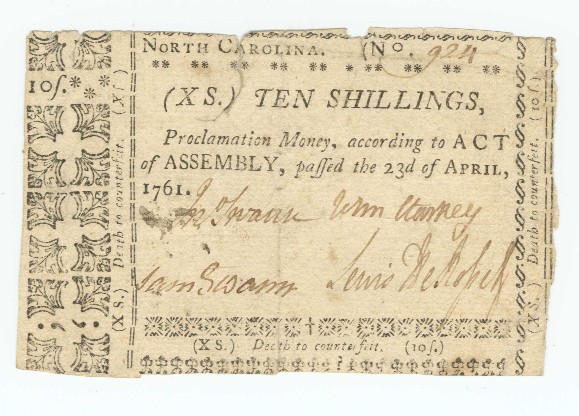 NORTH CAROLINA. (No. 924
10ſ.
(XS.) TEN SHILLINGS,
Proclamation Money, according to ACT
of ASSEMBLY, paſſed the 23d of APRIL,
1761.
Jn Swann Wm
Sam Swann Lewis DeRoſſett
(XS.) Death to counterfeit. (10ſ.)
(XS.) Death to counterfeit. (Xſ)
(XS.) Death to counterfeit. (10ſ.)